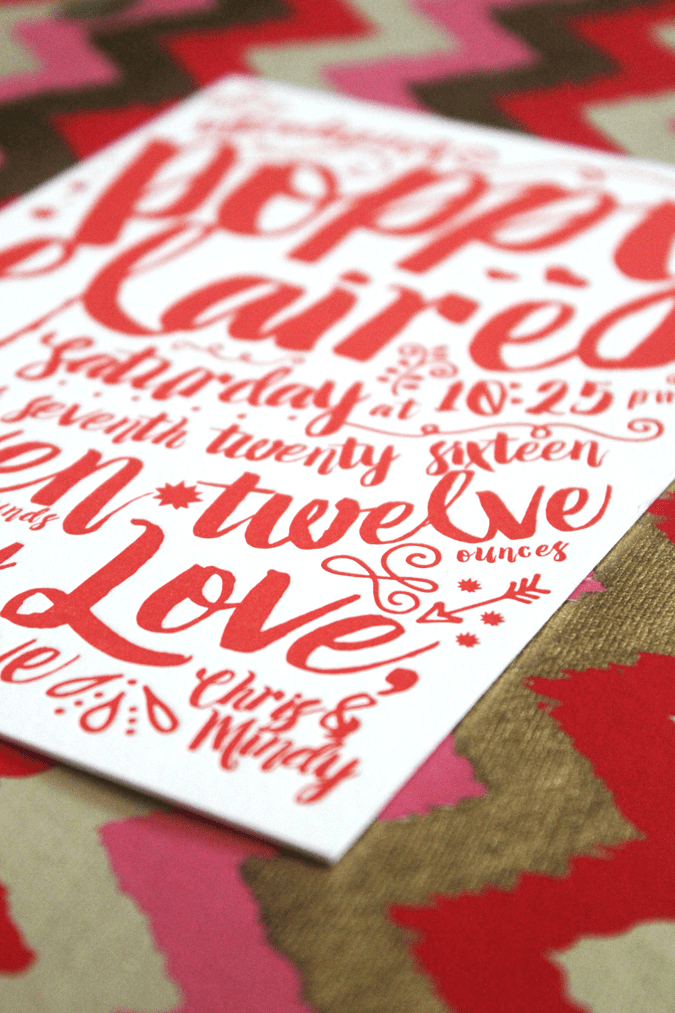 poppy
Claire
saturday at 10:25 pm
seventh twenty sixteen
twelve
ounces
Love,
Chris &
Mindy